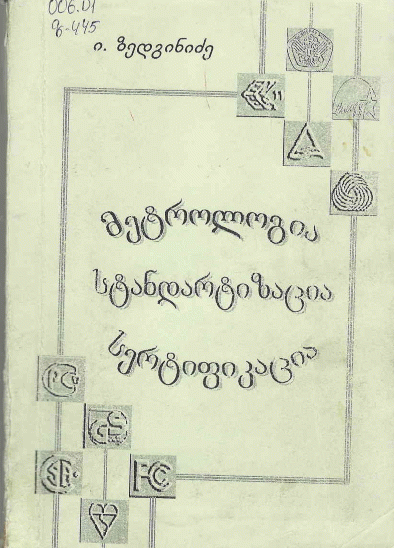 006.01
ზ-445
ი. ზედგინიძე
მეტროლოგია
სტანდარტიზაცია
სერტიფიკაცია